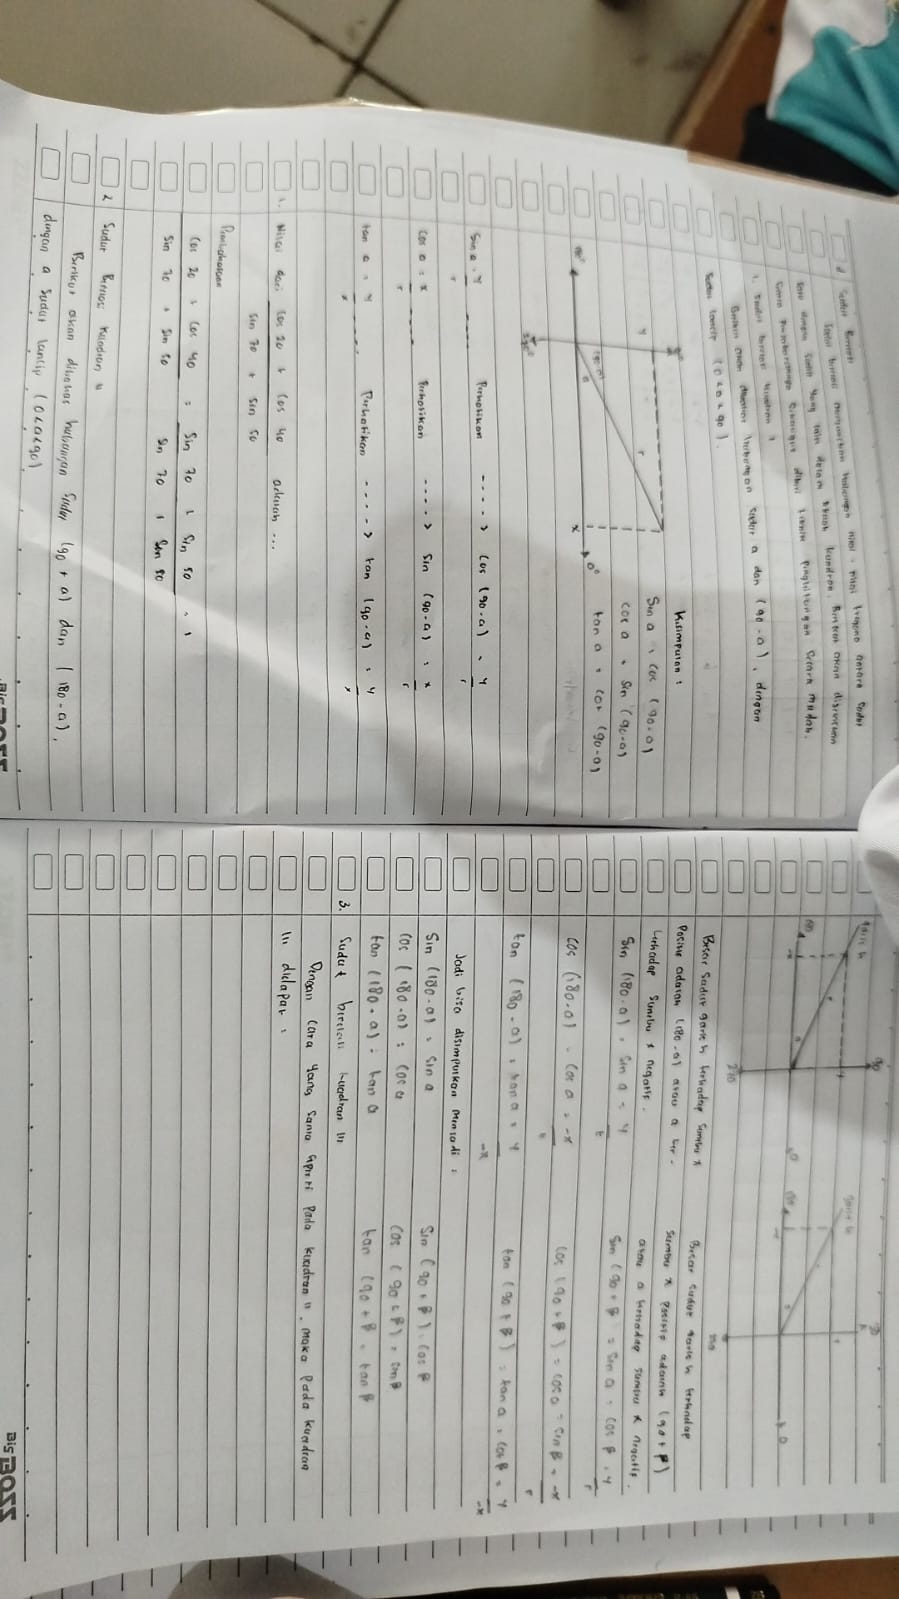 d Sudut Berelasi
1. Sudut berelasi kuadran I
Berikut akan dibahas hubungan sudut a dan (90 - a), dengan
Sudut lancip (0 < a < 90).
Kesimpulan :
Sin a = cos (90-a)
cos a = sin (90-a)
tan a = cot (90-a)
90°
y
r
(90-a)
a
x
0°
180°
270°
Sin a = y/r Perhatikan ----> cos (90-a) = y/r
cos a = x/r Perhatikan ----> sin (90-a) = x/r
tan a = y/x Perhatikan ----> tan (90-a) = y/x
1. Nilai dari cos 20 + cos 40 / sin 70 + sin 50 adalah ...
Pembahasan
cos 20 + cos 40 / sin 70 + sin 50 = sin 70 + sin 50 / sin 70 + sin 50 = 1
2 Sudut Berelasi Kuadran II
Berikut akan dibahas hubungan sudut (90 + a) dan (180 - a),
dengan a sudut lancip (0<a<90)
Bis BOSS
garis h
90
270
Besar sudut garis h terhadap sumbu x
Positif adalah (180-a) atau a ter-
hadap sumbu x negatif.
Sin (180-a) = sin a = y/r
cos (180-a) = cos a = -x/r
tan (180-a) = tan a = y/-x
Besar sudut garis h terhadap
sumbu x positif adalah (90+β)
atau a terhadap sumbu x negatif.
Sin (90+β = sin a = cos β = y/r
cos (90+β) = cos a = sin β = -x/r
tan (90+β) = tan a = cot β = y/-x
Jadi bisa disimpulkan menjadi :
Sin (180-a) = sin a
cos (180-a) = cos a
tan (180-a) = tan a
Sin (90+β) = cos β
cos (90+β) = sin β
tan (90+β = tan β
3. Sudut berelasi kuadran III
Dengan cara yang sama seperti pada kuadran II, maka pada kuadran
III didapat :
Bis BOSS